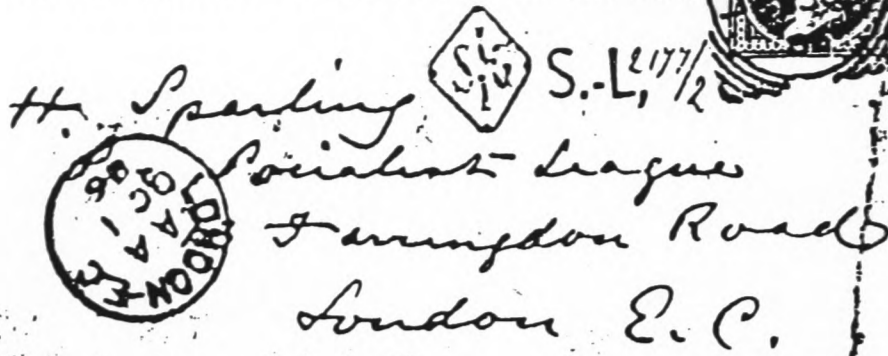 S.-L. 2177/2
H. Sparling
Socialist League
Farringdon Road
London E. C.
LONDON·E.C
A
OC 1
86